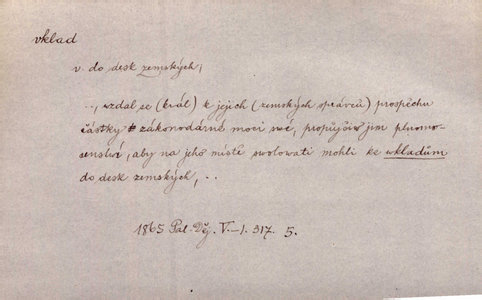 vklad
v. do desk zemských,
.., vzdal se (král) k jejich (zemských správců) prospěchu
částky zákonodárné moci své, propůjčiv jim plnomo-
cenství, aby na jeho místě svolovati mohli ke vkladům
do desk zemských, ..
1865 Pal. Děj. V.-1. 317. 5.